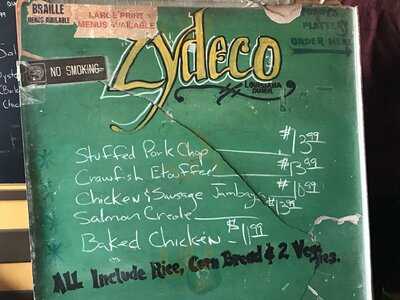 BRAILLE
MENUS AVAILABLE
LARGE PRINT
MENUS AVAILABLE
PLATTERS
ORDER HERE
NO SMOKING
Zydeco
LOUISIANA
DINER
Stuffed Pork Chop $13.99
Crawfish Etouffee $13.99
Chicken & Sausage Jambaya $10.99
Salmon Creole $13.99
Baked Chicken - $11.99
ALL Include Rice, Corn Bread & 2 Veggies.